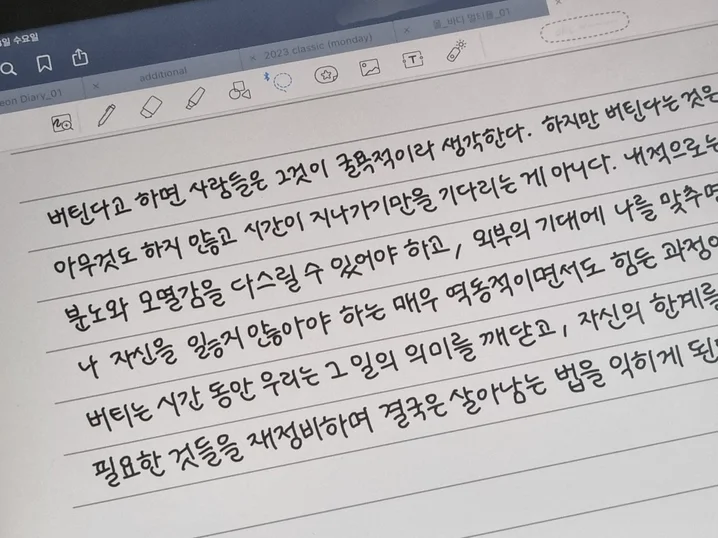 일 수요일
eon Diary_01
additional
2023 classic (monday)
01
T
버틴다고 하면 사람들은 그것이 굴욕적이라 생각한다. 하지만 버틴다는 것은
아무것도 하지 않고 시간이 지나가기만을 기다리는 게 아니다. 내적으로는
분노와 모멸감을 다스릴 수 있어야 하고, 외부의 기대에 나를 맞추면
나 자신을 잃지 않아야 하는 매우 역동적이면서도 힘든 과정
버티는 시간 동안 우리는 그 일의 의미를 깨닫고, 자신의 한계를
필요한 것들을 재정비하며 결국은 살아남는 법을 익히게 된